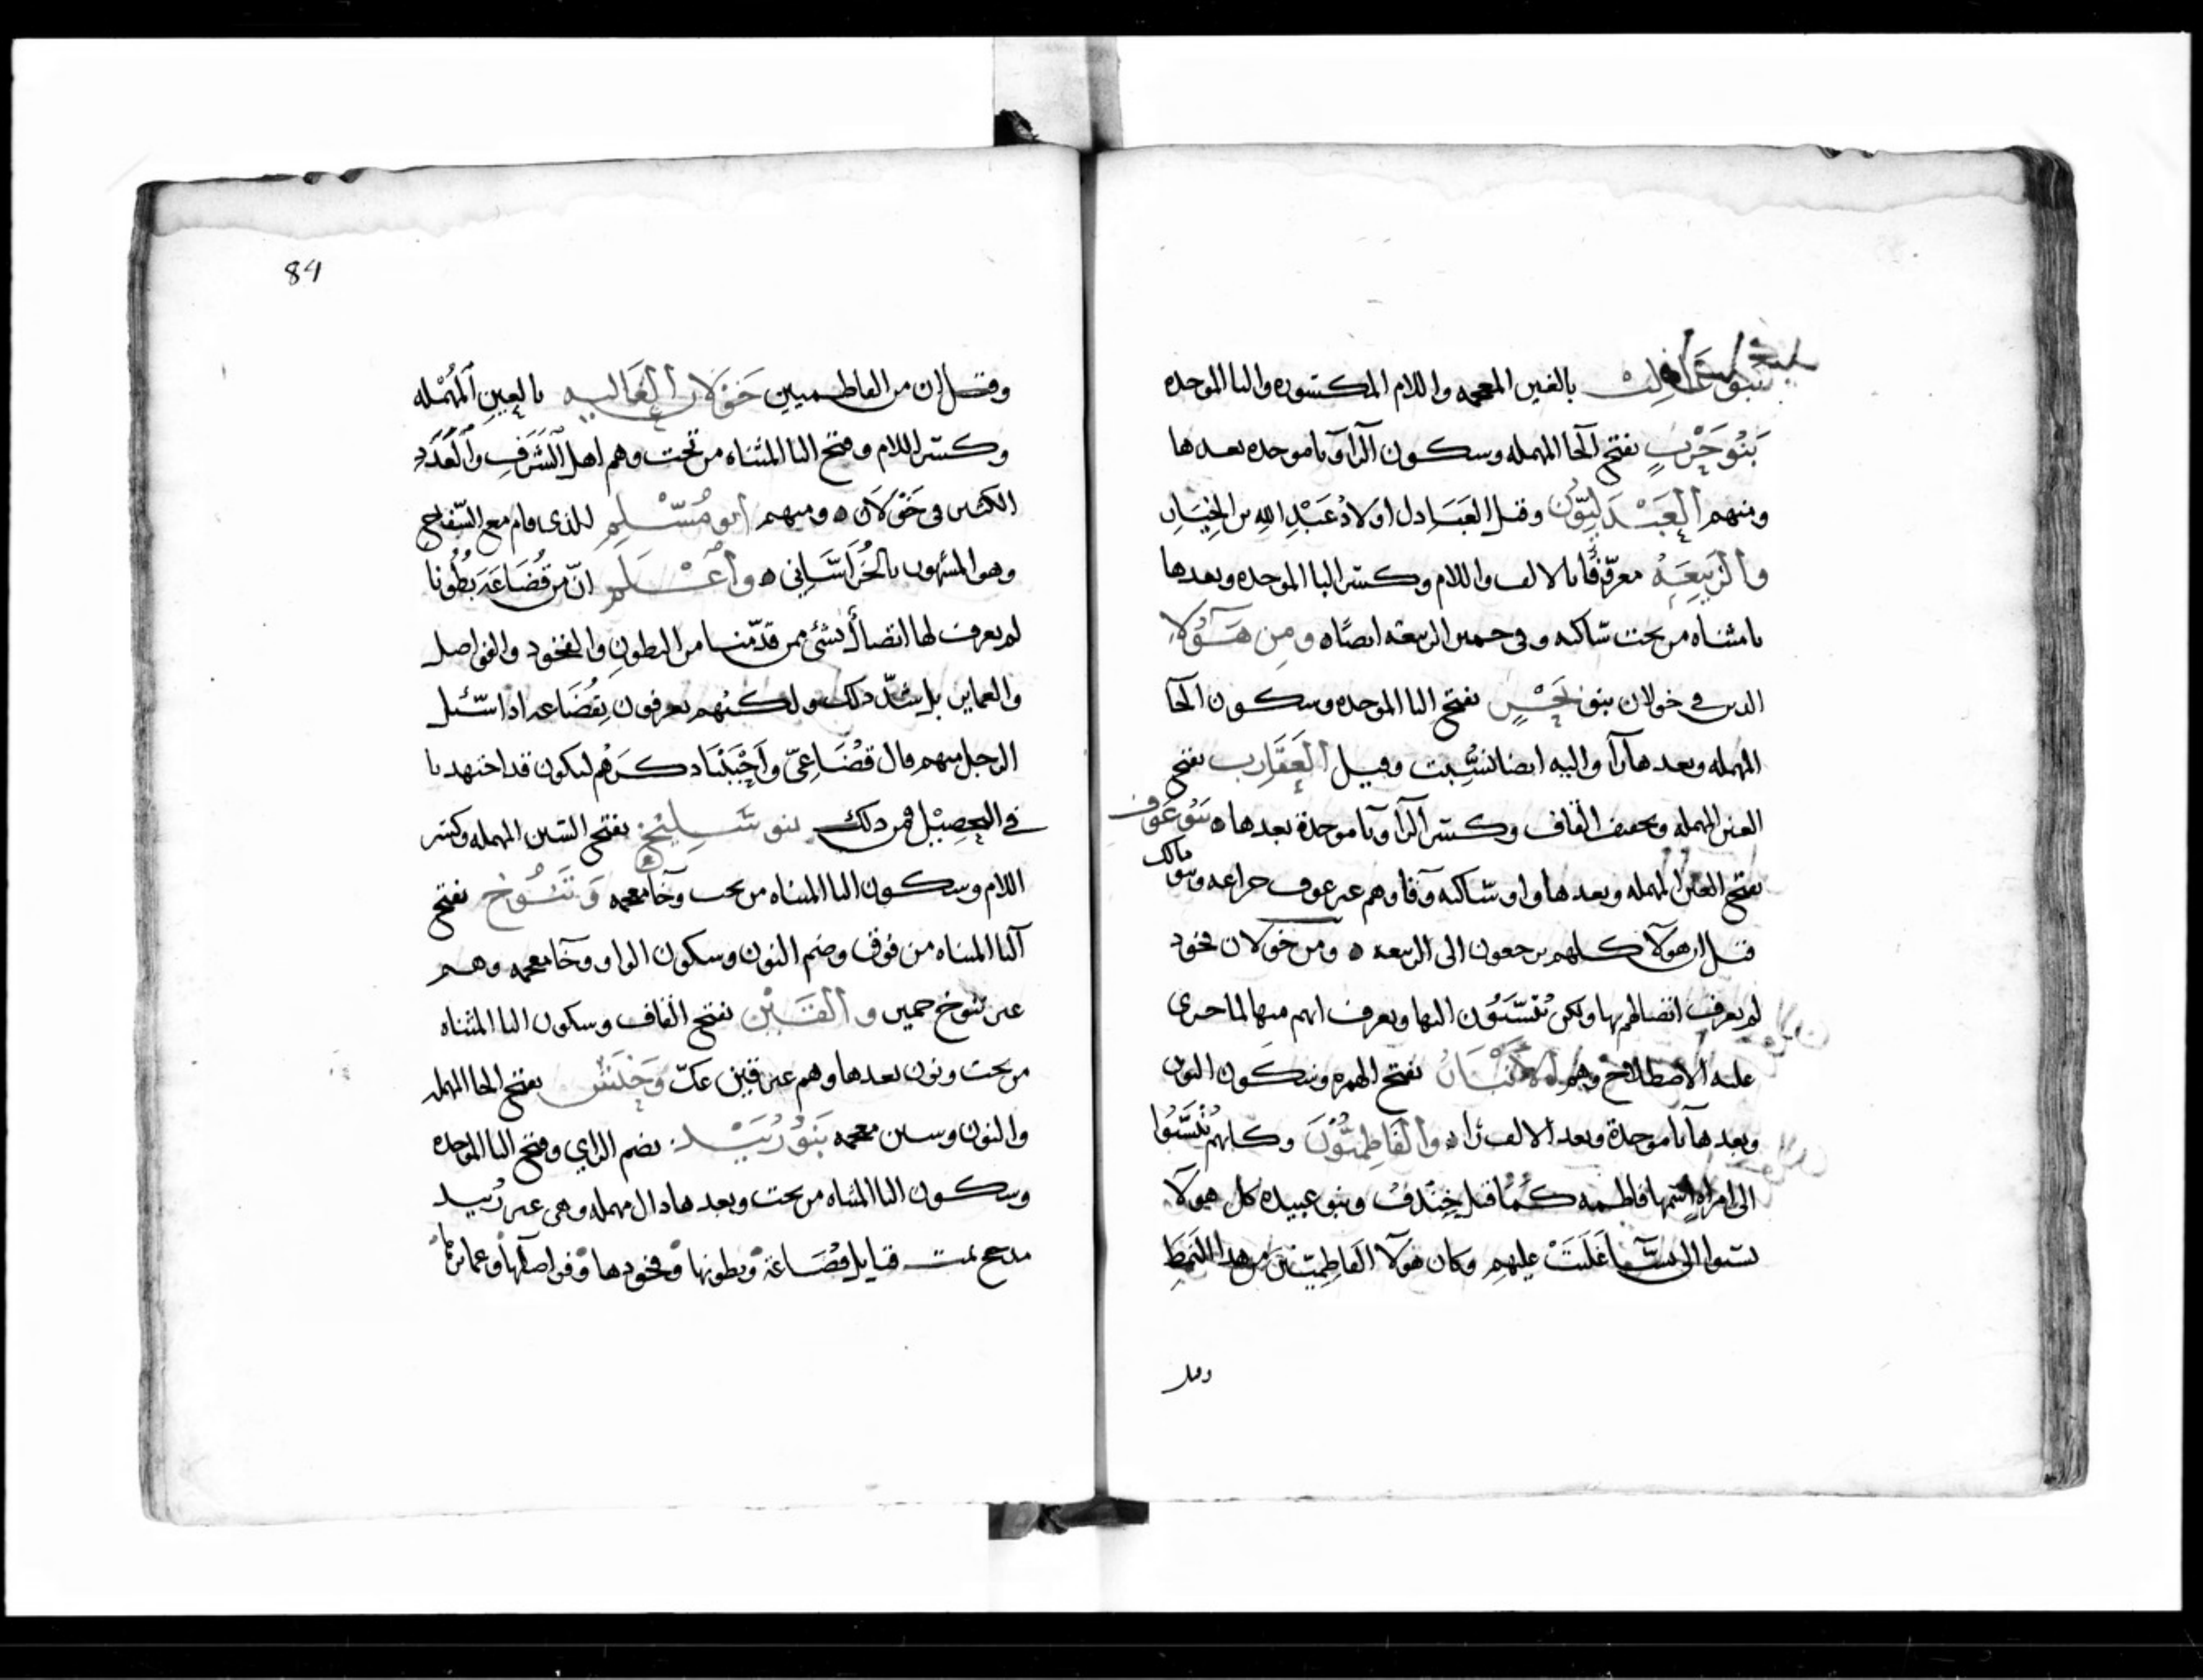 بنو غالب بالغين المعجمه واللام المكسوره والبا الموحده
بَنُو حَرْبٍ بفتح الحا المهمله وسكون الرا وبا موحده بعدها
ومنهم العَبْدَليّون وقيل العَبَادل اولاد عَبْدِ الله بن
والرَّبيعَة معرّفًا بالالف واللام وكسر البا الموحده وبعدها
يا مثناه من تحت ساكنه وفى حمير الربيعه ايضًا ه ومن هَؤلاءِ
الدين في خولان بنو بَحْرٍ بفتح البا الموحده وسكون الحا
المهمله وبعدها را واليه ايضا نسبت وقيل العَقَارب بفتح
العين المهمله وتخفيف القاف وكسر الرا وبا موحدة بعدها ه بنو عَوف
بفتح العين المهمله وبعدها واو ساكنه وفا وهم غير عوف خزاعه وبنو مالك
قيل ان هولا كلهم يرجعون الى الربيعه ه ومن خولان فخود
لم يعرف اتصالهم بها ولكن يُنْسَبُون اليها ويعرف انهم منها لما جرى
عليه الاصطلاح وهم الأنبار بفتح الهمزه وسكون النون
وبعدها با موحدة وبعد الالف را ه والفاطميّون وكلهم نُسِبُوا
الى امراه اسمها فاطمه كما قيل خِنْدف وبنو عبيده كل هولا
نسبوا الى نسآ غلبت عليهم وكان هولا الفاطميّين من هذا النمط
وقيل
84
وقيل ان من الفاطميين خَوْلان العَاليه بالعين المُهْمله
وكسر اللام وفتح اليا المثناه من تحت وهم اهل الشَرَف والعَدَد
الكثير فى خَوْلان ه ومنهم ابو مُسْلم الذى قام مع السفاح
وهو المشهور بالخُرَاسَاني ه وأعْلم انّ من قُضَاعَة بُطُونا
لم يعرف لها اتصالٌ بشئ ممن قدّمنا من البطون والفخود والفواصل
والعماير بل شدّ دلك ولكنهم يعرفون بقُضَاعه ادا سُئل
الرجل منهم قال قُضَاعيّ وأحْبَبْنا دكرهم ليكون قد اجتهدنا
في التحصيل فمن دلك بنو سَلِيْح بفتح السين المهمله وكسر
اللام وسكون اليا المثناه من تحت وخا معجمه وَتَنُوخ بفتح
التا المثناه من فوق وضم النون وسكون الواو وخا معجمه وهم
غير تنوخ حمير والقَيْن بفتح القاف وسكون اليا المثناه
من تحت ونون بعدها وهم غير قين عكّ وَحَنَش بفتح الحا المهمله
والنون وشين معجمه بَنُو زُبَيْد بضم الزاي وفتح البا الموحده
وسكون اليا المثناه من تحت وبعدها دال مهمله وهى غير زُبيد
مدحج تمت قبايل قُضَاعَة وبطونها وفخودها وفواصلها وعمايرها